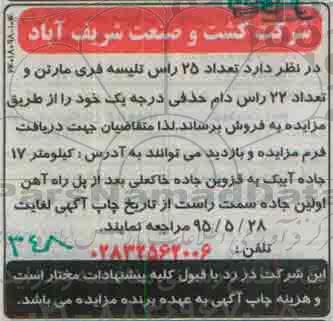 شرکت کشت و صنعت شریف آباد
در نظر دارد تعداد ۲۵ راس تلیسه فری مارتن و
تعداد ۲۲ راس دام حذفی درجه یک خود را از طریق
مزایده به فروش برساند.لذا متقاضیان جهت دریافت
فرم مزایده و بازدید می توانند به آدرس : کیلومتر ۱۷
جاده آبیک به قزوین جاده خاکعلی بعد از پل راه آهن
اولین جاده سمت راست از تاریخ چاپ آگهی لغایت
۹۵ / ۵ / ۲۸ مراجعه نمایند.
تلفن: ۰۲۸۳۲۵۶۲۰۰۶
۳۴۸
این شرکت در رد یا قبول کلیه پیشنهادات مختار است
و هزینه چاپ آگهی به عهده برنده مزایده می باشد.